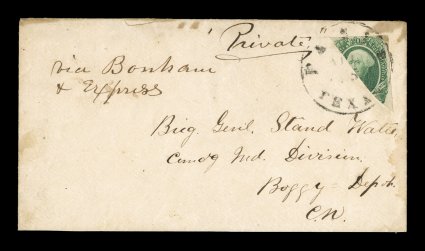 Private
via Bonham
& Express
Brig. Genl. Stand Watie
Comdg Ind. Division
Boggy Depot
C.N.
TEXAS